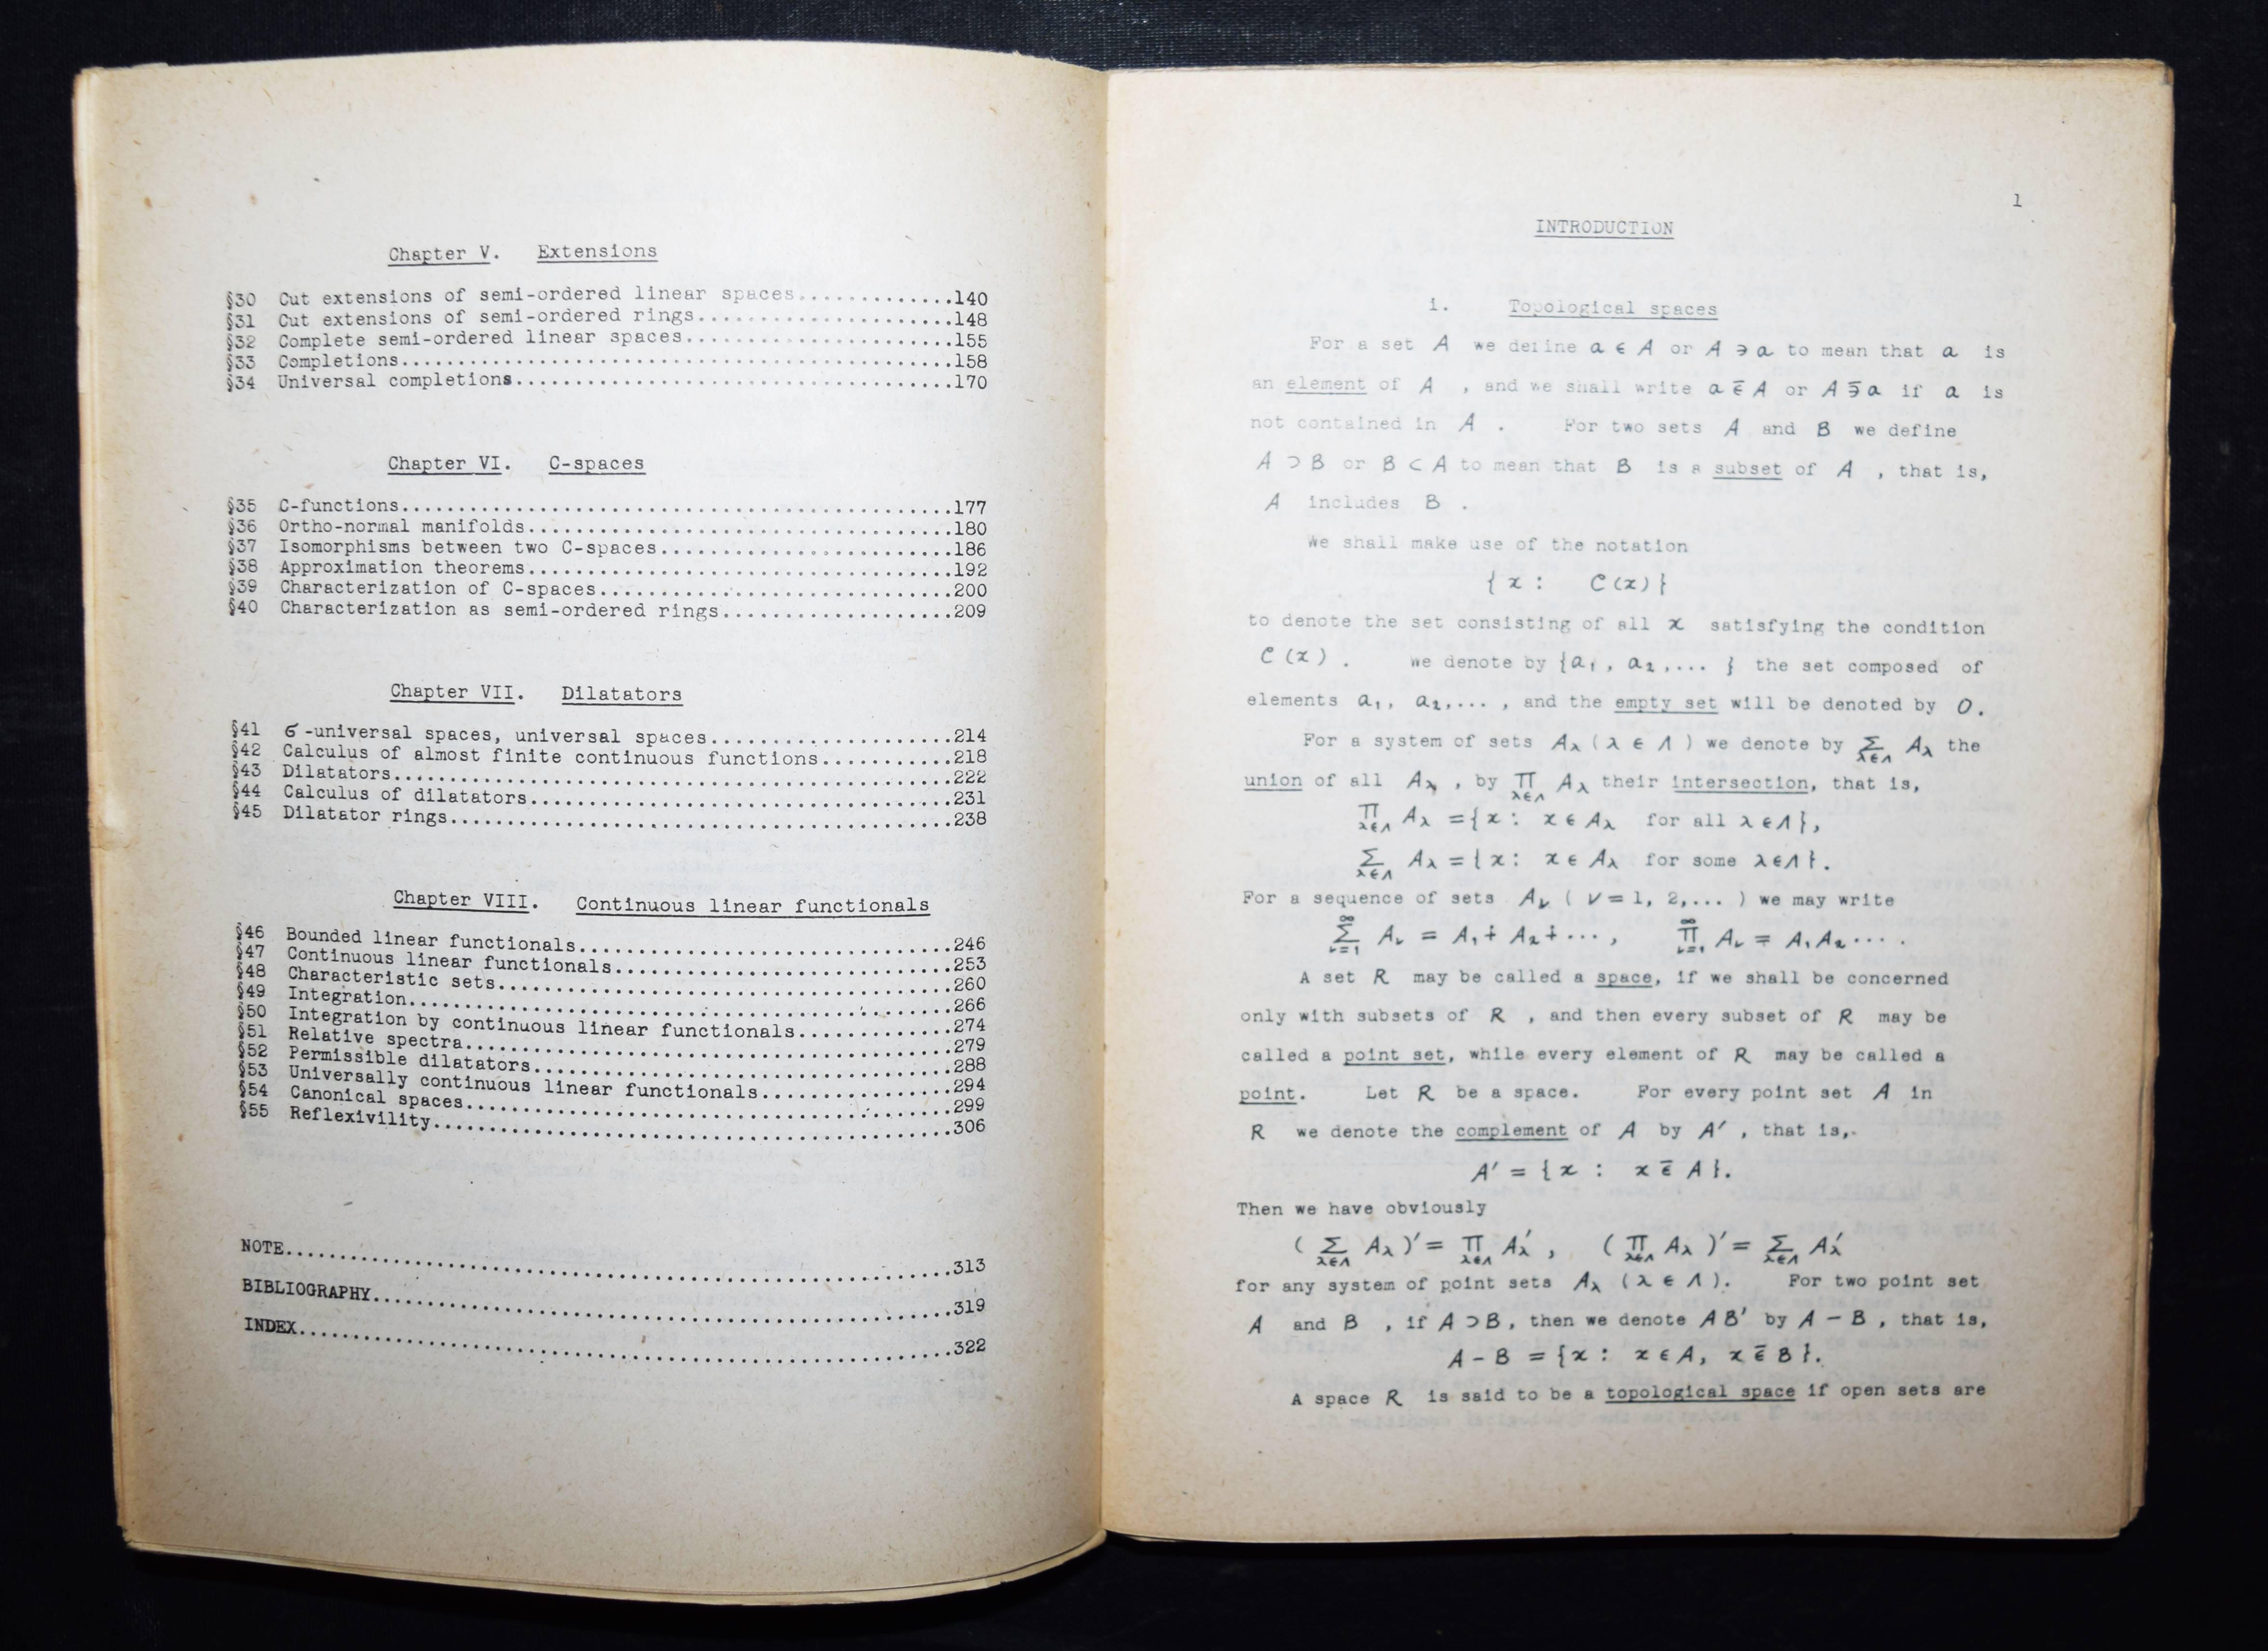 Chapter V. Extensions
§30 Cut extensions of semi-ordered linear spaces..............140
§31 Cut extensions of semi-ordered rings.......................148
§32 Complete semi-ordered linear spaces........................155
§33 Completions................................................158
§34 Universal completions......................................170
Chapter VI. C-spaces
§35 C-functions................................................177
§36 Ortho-normal manifolds.....................................180
§37 Isomorphisms between two C-spaces..........................186
§38 Approximation theorems.....................................192
§39 Characterization of C-spaces...............................200
§40 Characterization as semi-ordered rings.....................209
Chapter VII. Dilatators
§41 σ-universal spaces, universal spaces.......................214
§42 Calculus of almost finite continuous functions.............218
§43 Dilatators.................................................222
§44 Calculus of dilatators.....................................231
§45 Dilatator rings............................................238
Chapter VIII. Continuous linear functionals
§46 Bounded linear functionals.................................246
§47 Continuous linear functionals..............................253
§48 Characteristic sets........................................260
§49 Integration................................................266
§50 Integration by continuous linear functionals...............274
§51 Relative spectra...........................................279
§52 Permissible dilatators.....................................288
§53 Universally continuous linear functionals..................294
§54 Canonical spaces...........................................299
§55 Reflexivility..............................................306
NOTE...........................................................313
BIBLIOGRAPHY...................................................319
INDEX..........................................................322
1
INTRODUCTION
1. Topological spaces
For a set A we define a ∈ A or A ∋ a to mean that a is
an element of A , and we shall write a ∈̄ A or A ∋̄ a if a is
not contained in A . For two sets A and B we define
A ⊃ B or B ⊂ A to mean that B is a subset of A , that is,
A includes B .
We shall make use of the notation
{ x : C(x) }
to denote the set consisting of all x satisfying the condition
C(x) . We denote by {a₁, a₂,... } the set composed of
elements a₁, a₂,... , and the empty set will be denoted by O.
For a system of sets A_λ (λ ∈ Λ) we denote by Σ_{λ∈Λ} A_λ the
union of all A_λ , by Π_{λ∈Λ} A_λ their intersection, that is,
Π_{λ∈Λ} A_λ = {x : x ∈ A_λ for all λ ∈ Λ},
Σ_{λ∈Λ} A_λ = {x : x ∈ A_λ for some λ ∈ Λ}.
For a sequence of sets A_ν ( ν = 1, 2,... ) we may write
Σ_{ν=1}^∞ A_ν = A₁ ∔ A₂ ∔ ··· , Π_{ν=1}^∞ A_ν = A₁A₂ ··· .
A set R may be called a space, if we shall be concerned
only with subsets of R , and then every subset of R may be
called a point set, while every element of R may be called a
point. Let R be a space. For every point set A in
R we denote the complement of A by A′ , that is,
A′ = { x : x ∈̄ A }.
Then we have obviously
( Σ_{λ∈Λ} A_λ )′ = Π_{λ∈Λ} A′_λ , ( Π_{λ∈Λ} A_λ )′ = Σ_{λ∈Λ} A′_λ
for any system of point sets A_λ (λ ∈ Λ). For two point set
A and B , if A ⊃ B, then we denote AB′ by A − B , that is,
A − B = {x : x ∈ A, x ∈̄ B}.
A space R is said to be a topological space if open sets are